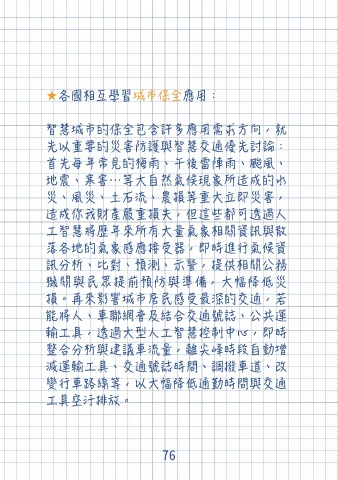 ★各國相互學習城市保全應用：
智慧城市的保全包含許多應用需求方向，就
先以重要的災害防護與智慧交通優先討論：
首先每年常見的梅雨、午後雷陣雨、颱風、
地震、寒害…等大自然氣候現象所造成的水
災、風災、土石流、農損等重大立即災害，
造成你我財產嚴重損失，但這些都可透過人
工智慧將歷年來所有大量氣象相關資訊與散
落各地的氣象感應接受器，即時進行氣候資
訊分析、比對、預測、示警，提供相關公務
機關與民眾提前預防與準備，大幅降低災
損。再來影響城市居民感受最深的交通，若
能將人、車聯網看及結合交通號誌、公共運
輸工具，透過大型人工智慧控制中心，即時
整合分析與建議車流量，離尖峰時段自動增
減運輸工具、交通號誌時間、調撥車道、改
變行車路線等，以大幅降低通勤時間與交通
工具空汙排放。
76